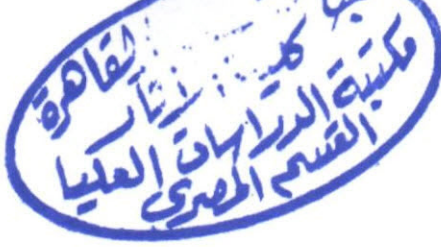 القاهرة
كلية الآثار
مكتبة الدراسات العليا
القسم المصرى